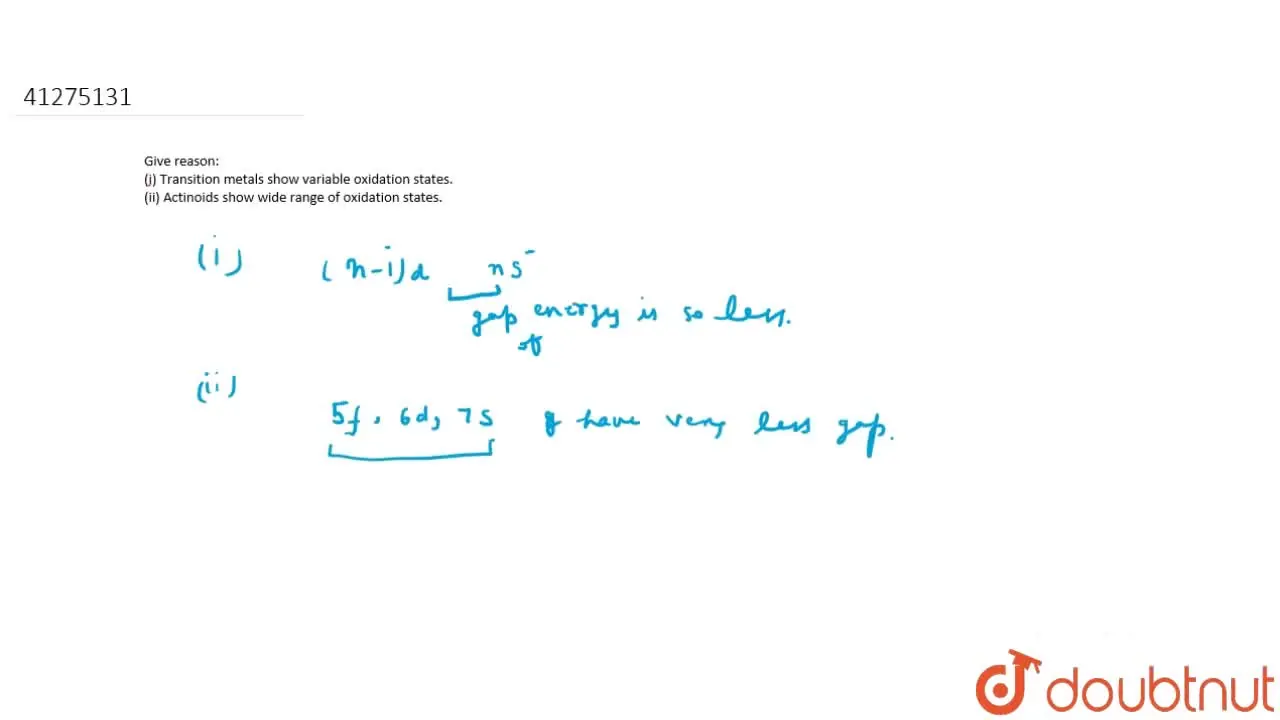 41275131
Give reason:
(i) Transition metals show variable oxidation states.
(ii) Actinoids show wide range of oxidation states.
(i) (n-1)d ns
gap energy is so less.
of
(ii)
5f, 6d, 7s have very less gap.
doubtnut